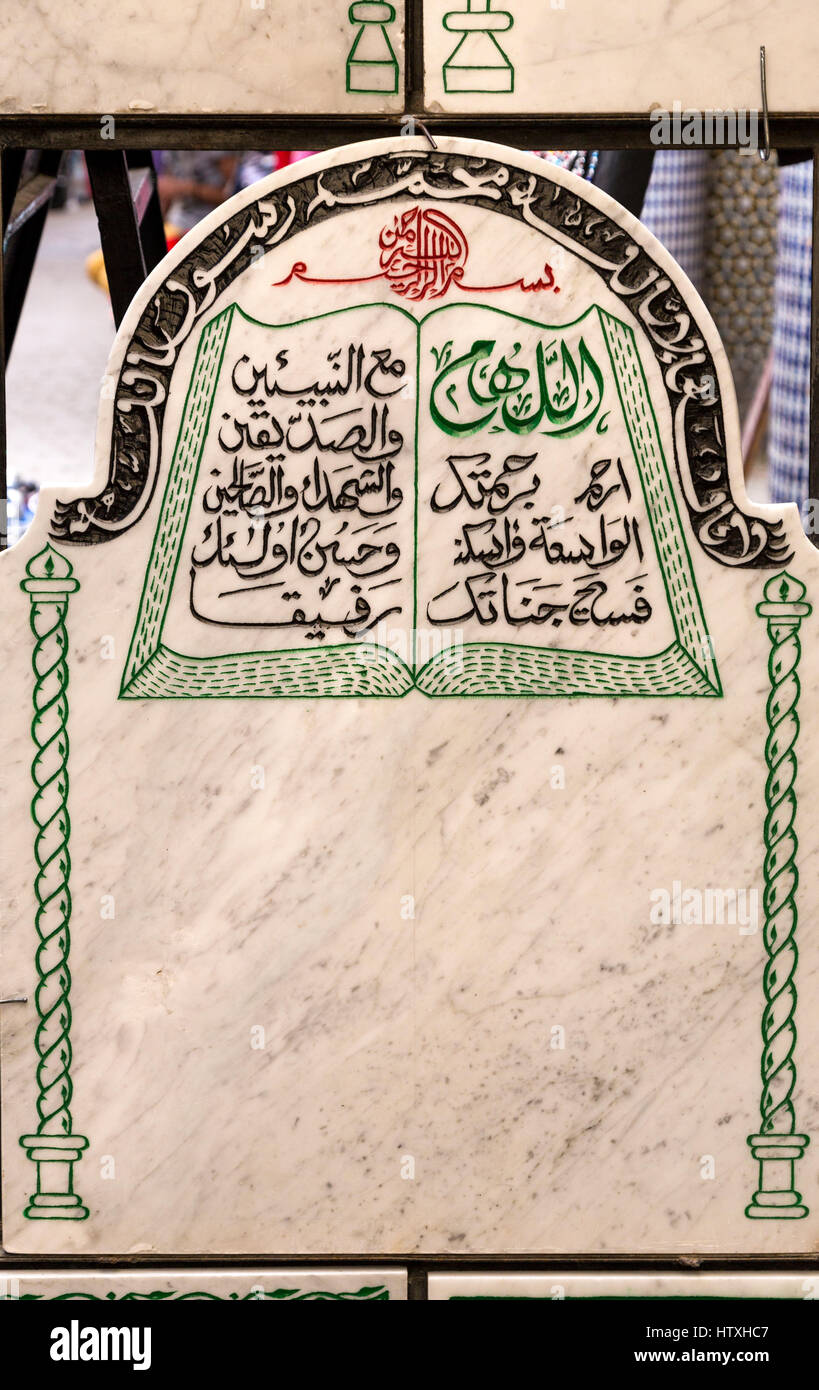 محمد رسول الله
بسم الله الرحمن الرحيم
اللهم
ارحم برحمتك
الواسعة واسكنه
فسيح جناتك
مع النبيئين
والصدّيقين
والشهداء والصالحين
وحسن اولئك
رفيقا
alamy
alamy
alamy
Image ID: HTXHC7
www.alamy.com